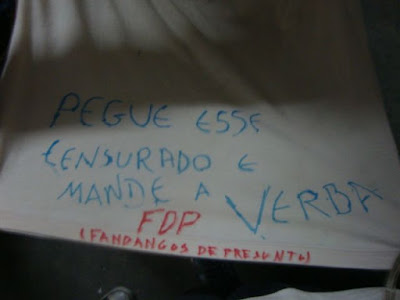 PEGUE ESSE
CENSURADO E
MANDE A VERBA
FDP
(FANDANGOS DE PRESUNTO)